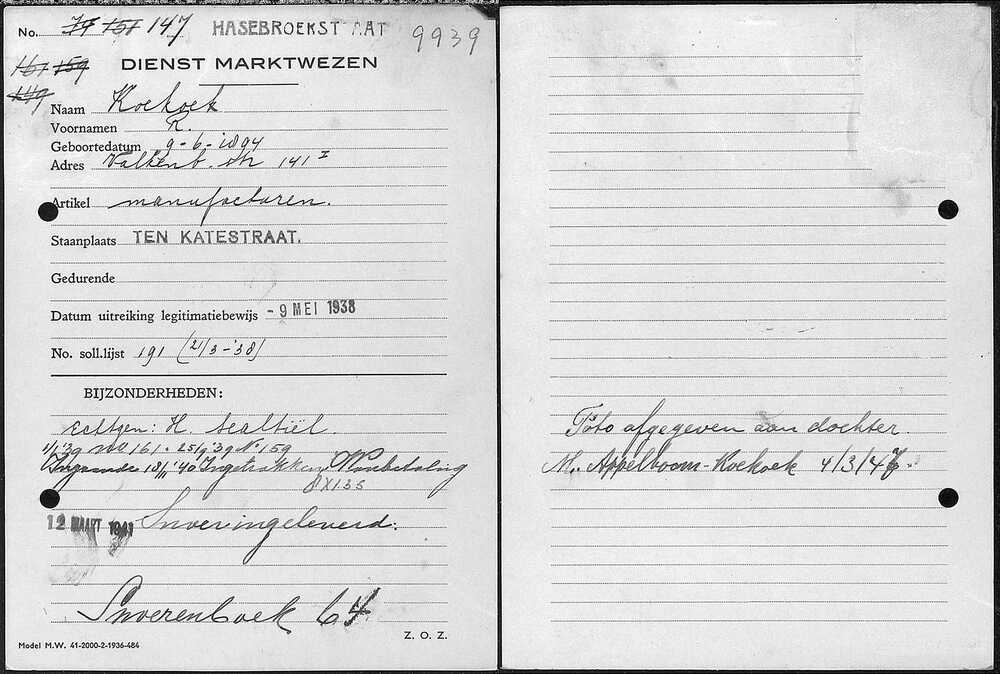 No. 79 151 147 HASEBROEKST AAT 9939
161 159
149
DIENST MARKTWEZEN
Naam Koekoek
Voornamen R.
Geboortedatum 9-6-1894
Adres Valkenb. str 141 I
Artikel manufacturen.
Staanplaats TEN KATESTRAAT.
Gedurende
Datum uitreiking legitimatiebewijs - 9 MEI 1938
No. soll.lijst 191 (21/3-'38)
BIJZONDERHEDEN:
Echtgen: H. Sealtiël
1/1 '39 No 161. 25/9 '39 No 159
'40 Ingetrokken Wanbetaling
12 MAART 1941 Snoer ingeleverd.
Snoerenboek 64
Z. O. Z.
Model M.W. 41-2000-2-1936-484
Foto afgegeven aan dochter
M. Appelboom-Koekoek 4/3/47.